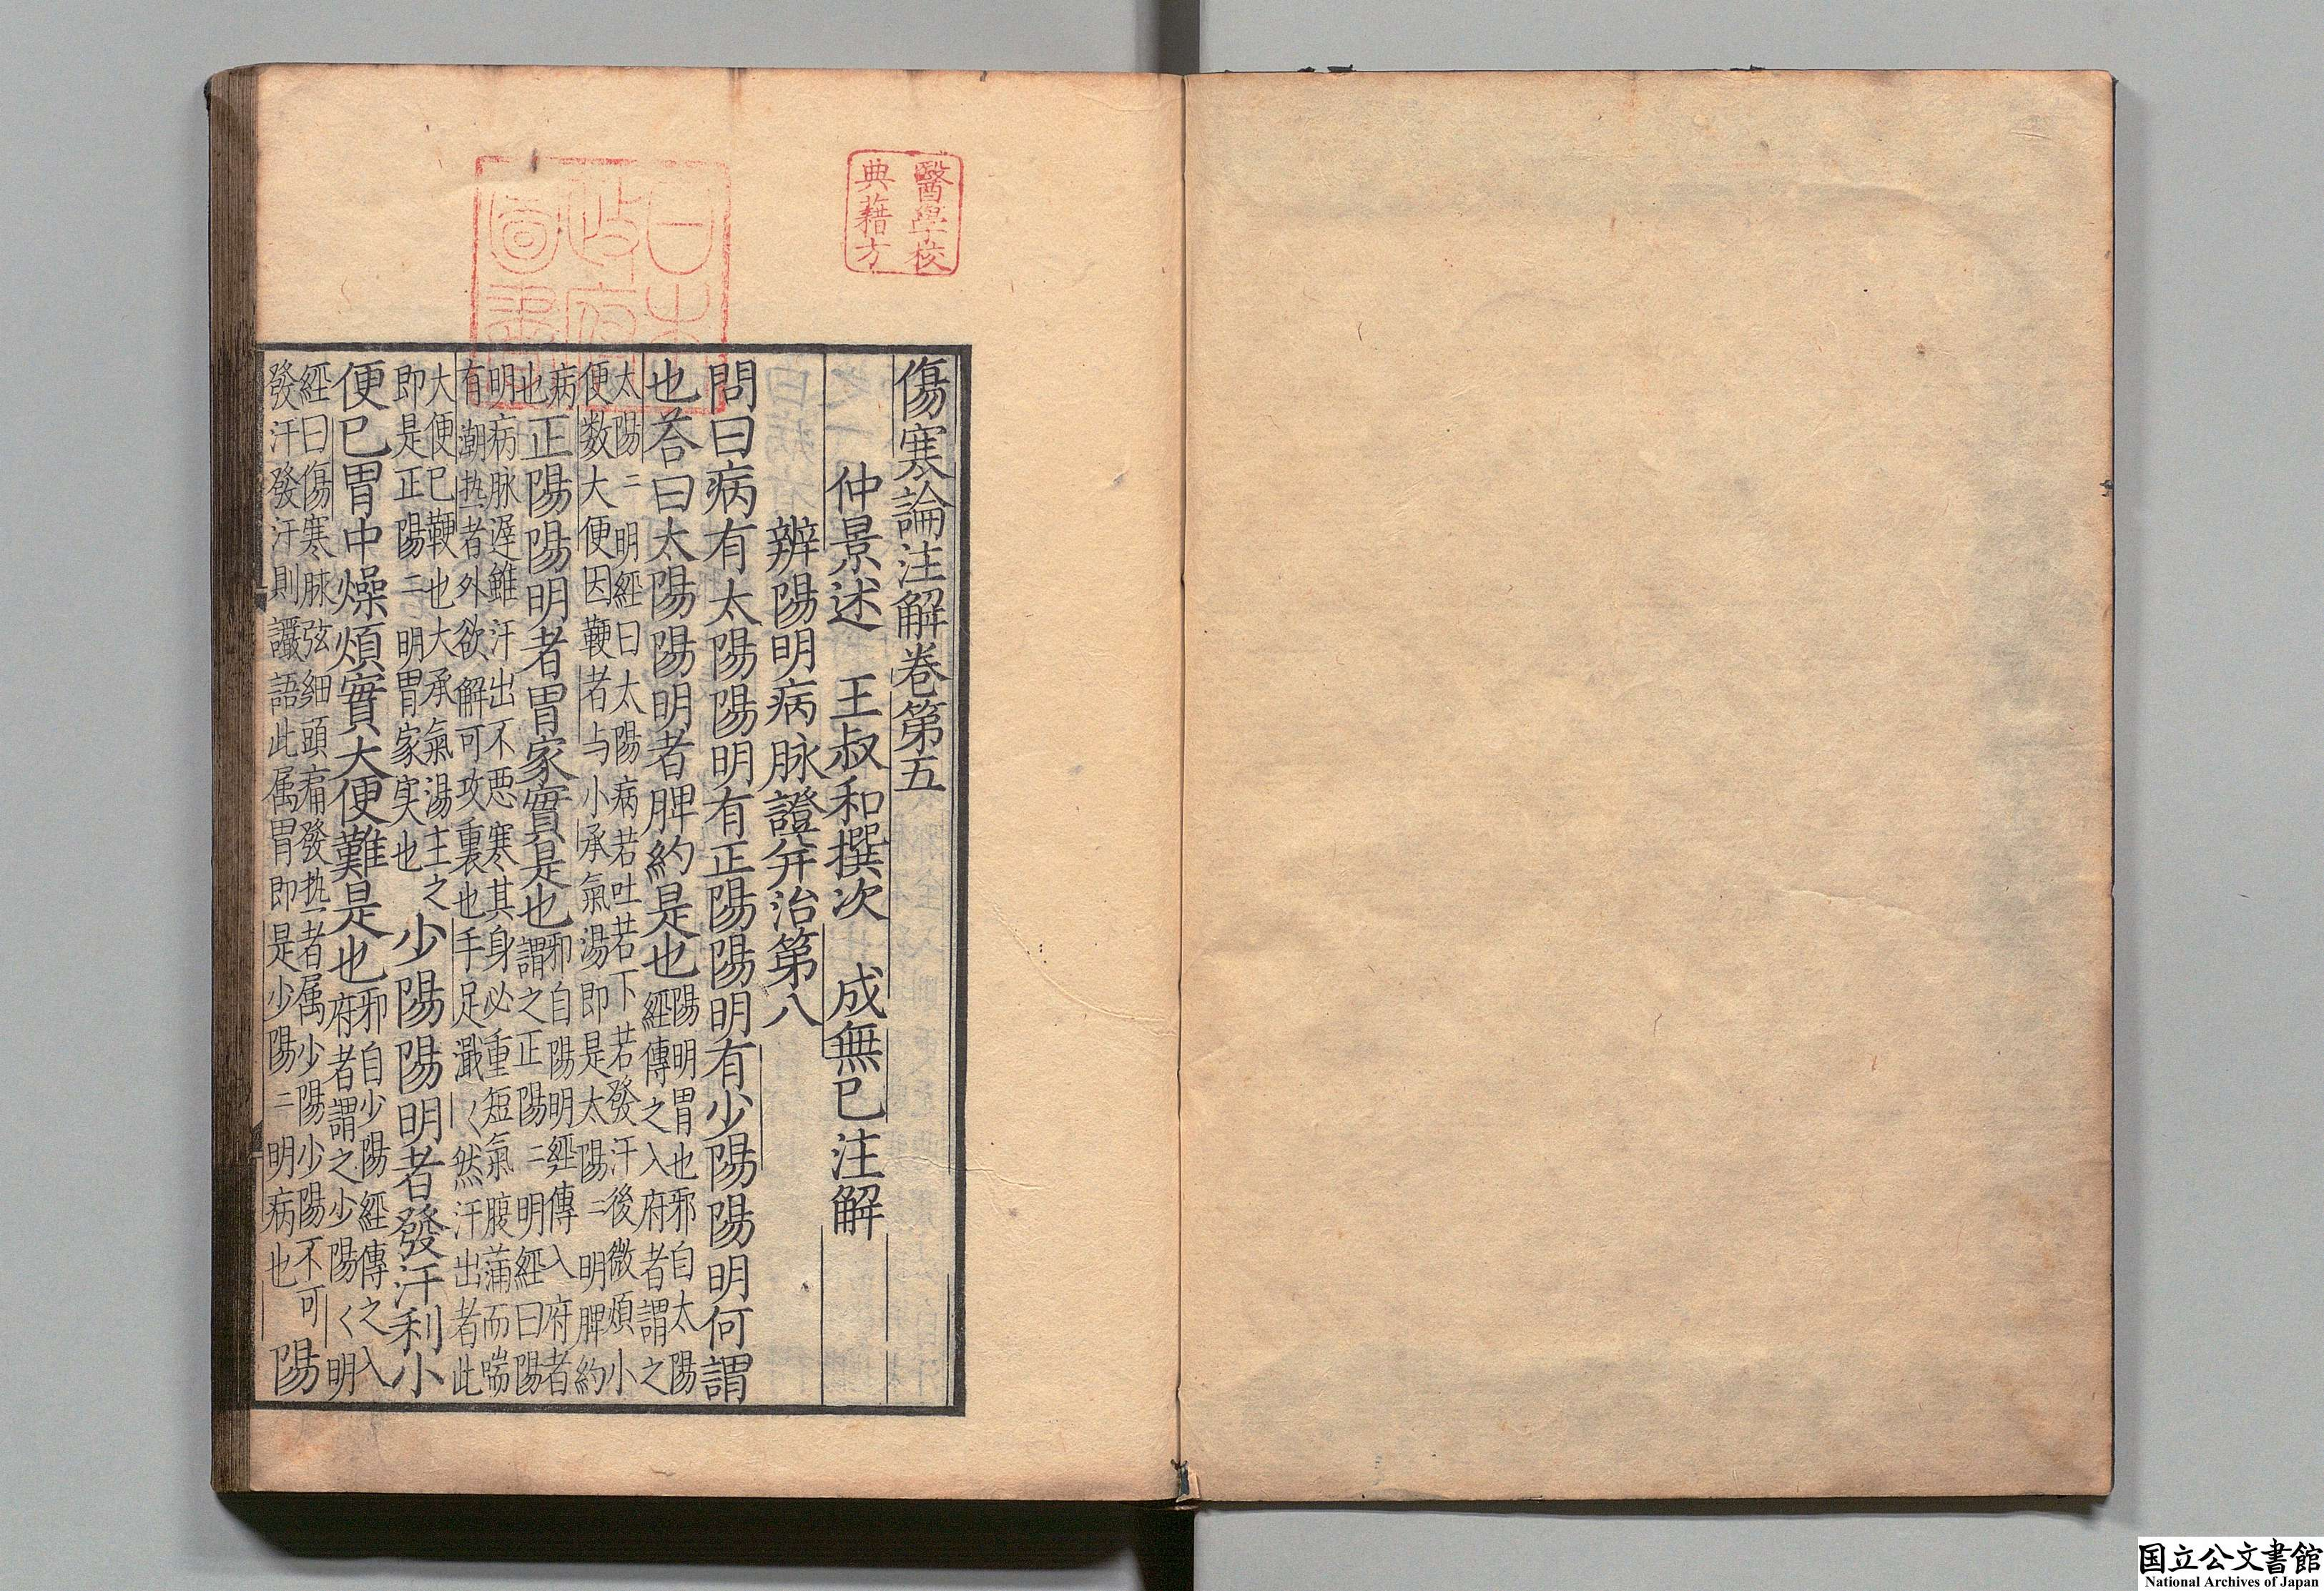 醫學校
典藉方
日本
政府
圖書
傷寒論注解卷第五
仲景述 王叔和撰次 成無已注解
辨陽明病脉證并治第八
問曰病有太陽陽明有正陽陽明有少陽陽明何謂
也荅曰太陽陽明者脾約是也
陽明胃也邪自太陽
經傳之入府者謂之
太陽〻明經曰太陽病若吐若下若發汗後微煩小
便数大便因鞕者与小承氣湯即是太陽〻明脾約
病
也
正陽陽明者胃家實是也
邪自陽明經傳入府者
謂之正陽〻明經曰陽
明病脉遲雖汗出不悪寒其身必重短氣腹蒲而喘
有潮热者外欲解可攻裏也手足濈〱然汗出者此
大便已鞕也大承氣湯主之
即是正陽〻明胃家実也
少陽陽明者發汗利小
便已胃中燥煩實大便難是也
邪自少陽經傳之入
府者謂之少陽〱明
經曰傷寒脉弦細頭痛發热者属少陽少陽不可
發汗發汗則讝語此属胃即是少陽〻明病也
陽
国立公文書館
National Archives of Japan